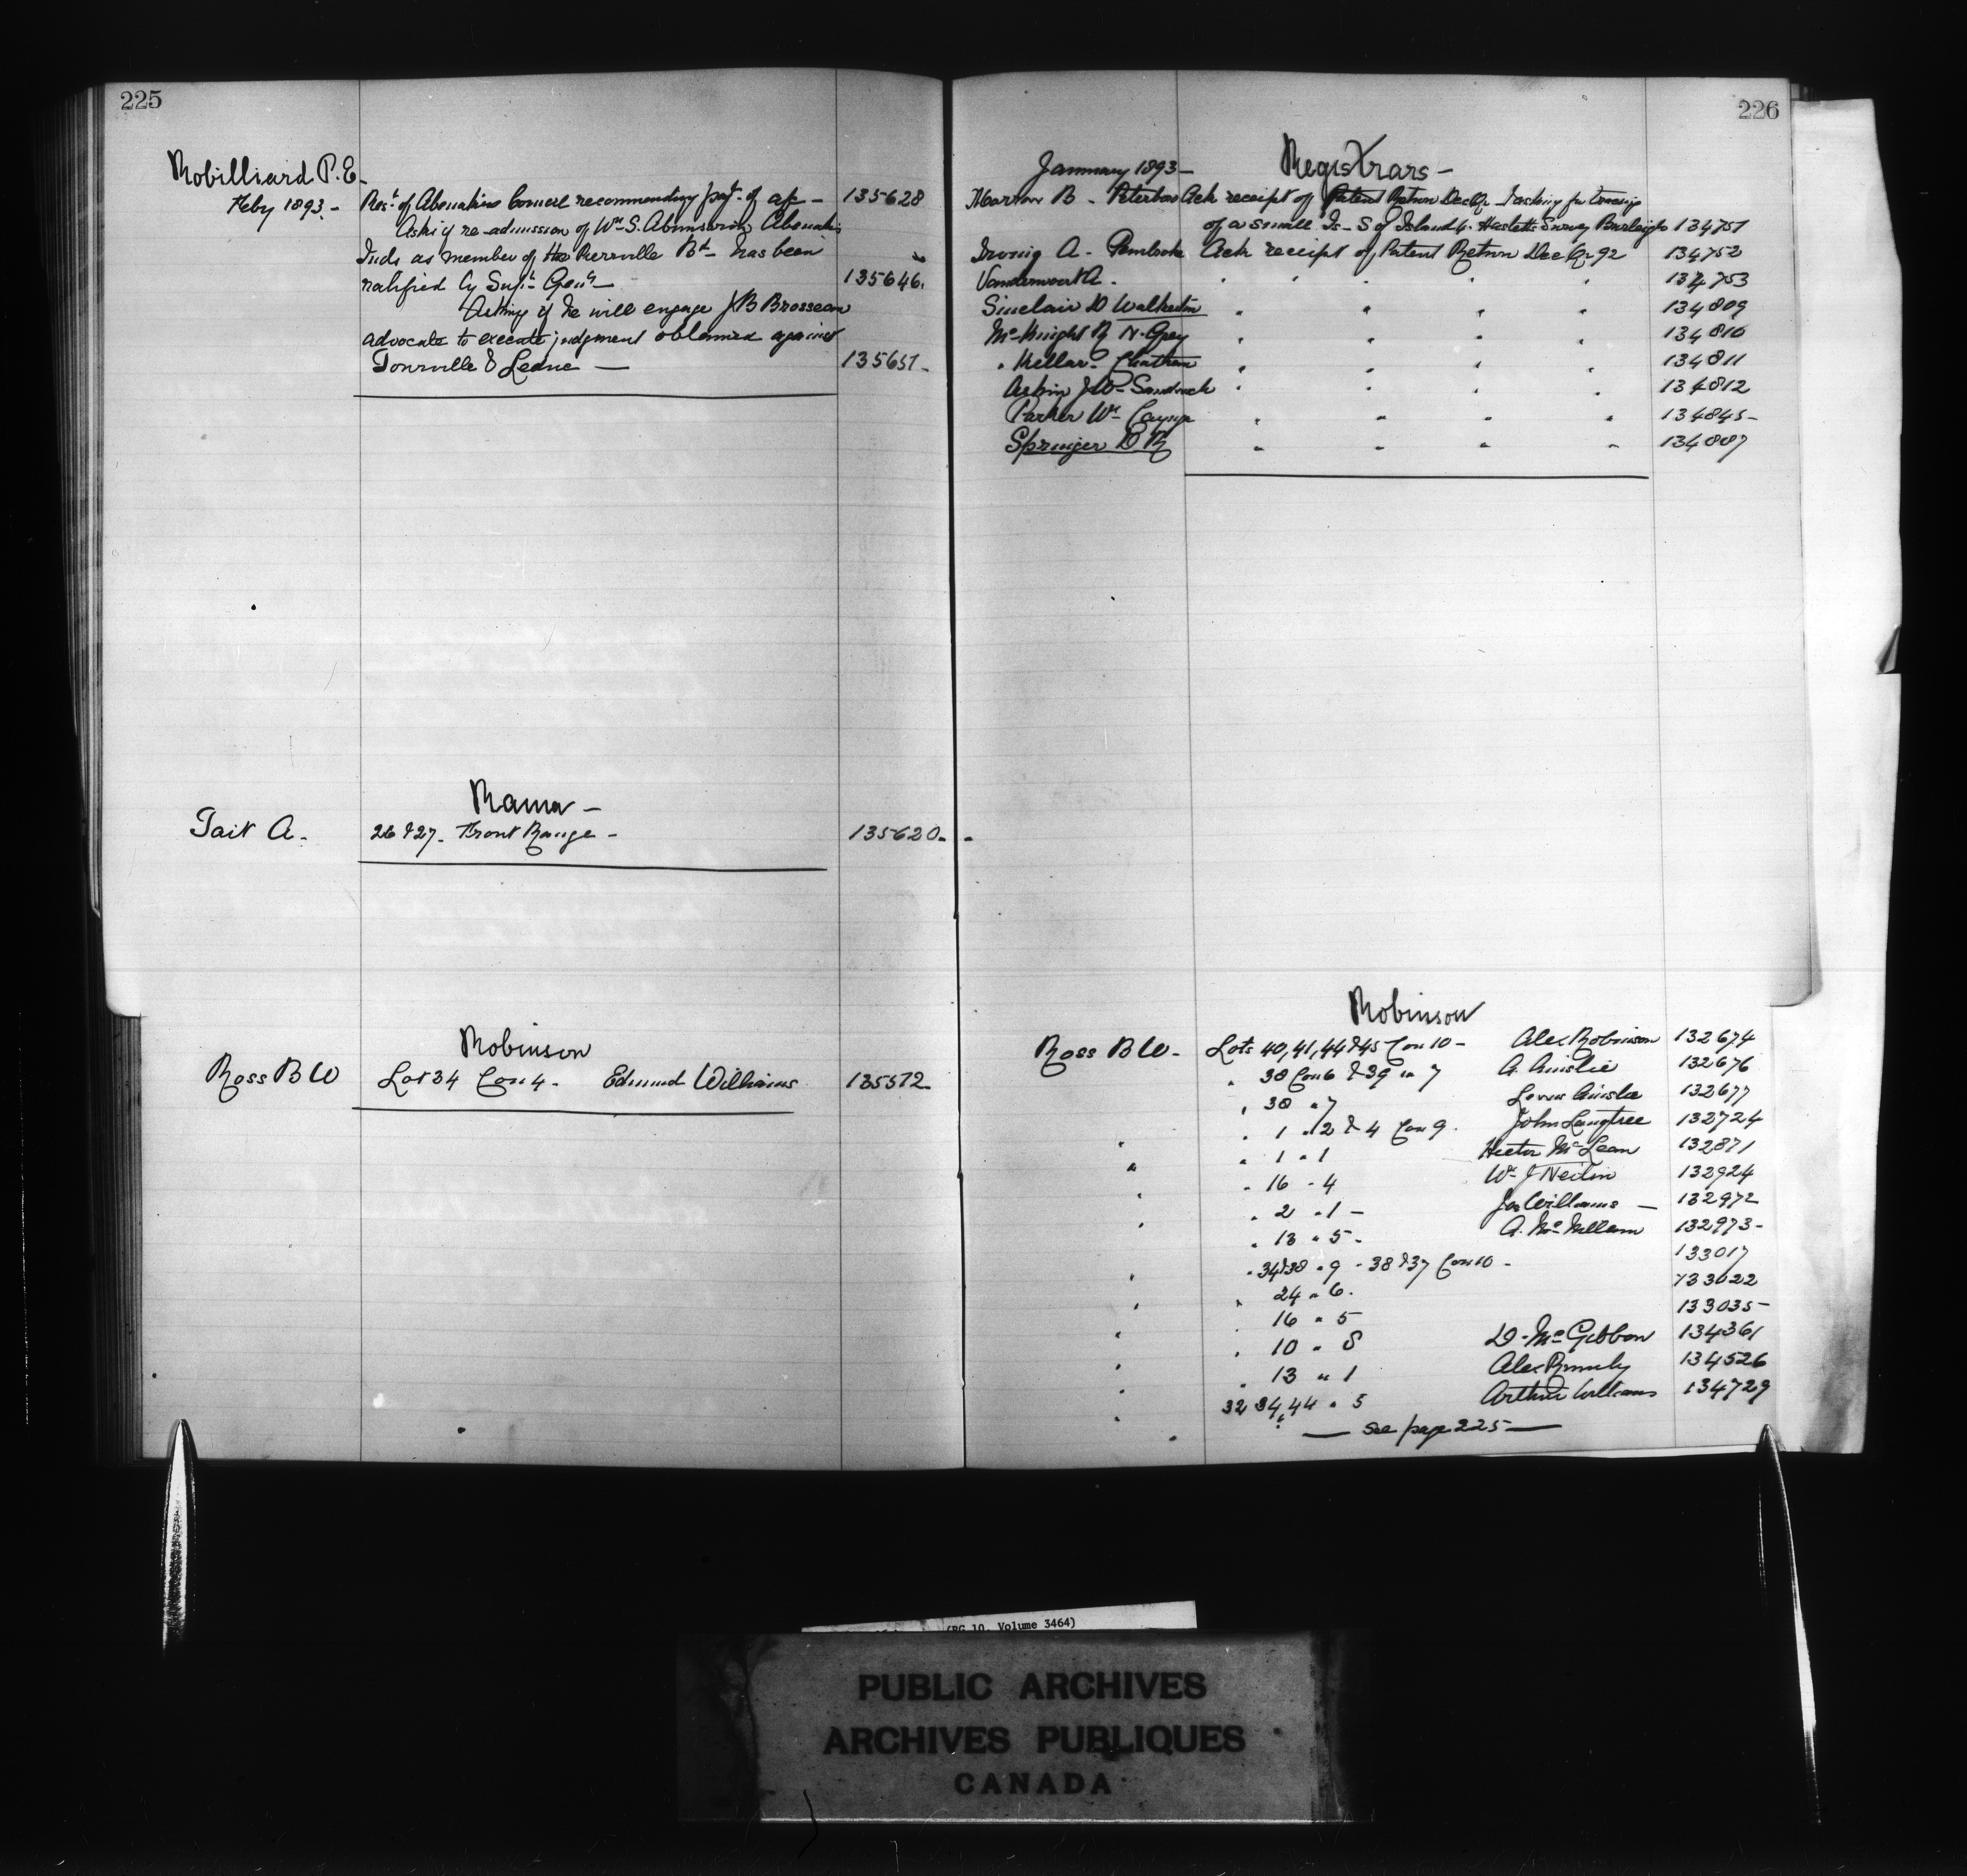 225
Robilliard P.E.
Feby 1893 - Rest. of Abenakis Council recommending payt. of a/c - 135628
Asks if re-admission of Wm S. Abenakis
Inds as member of the Pierreville Bd - has been
ratified by Supt Genl - 135646.
Asking if he will engage J B Brosseau
advocate to execute judgment obtained against
Tourville & Leduc - 135651 -
Rama -
Tait A. 26 & 27 - Front Range - 135620 -
Robinson
Ross B W Lot 34 Con 4 - Edmund Williams 135572
226
January 1893 - Registrars -
Morrow B - Peterboro Ack receipt of Patent Return Dec Qr - & asking for tracing
of a small Is - S of Island 4 - Haslett's Survey Burleigh 134751
Irving A - Pembroke Ack receipt of Patent Return Dec Qr 92 134752
A. " " " " 134753
Sinclair D Walkerton " " " " 134809
McKnight R N. Grey " " " " 134810
Kellar - Chatham " " " " 134811
Askin J W - Sandwich " " " " 134812
Parker Wm Cayuga " " " " 134845 -
Springer D R " " " " 134887
Robinson
Ross B W - Lots 40, 41, 44 & 45 Con 10 - Alex Robinson 132674
" 38 Con 6 & 39 in 7 A. Ainslie 132676
" 38 " 7 Ainslie 132677
" 1 " 2 & 4 Con 9 - John Langtree 132724
" " 1 " 1 Hector McLean 132871
" " 16 " 4 Wm J 132924
" " 2 " 1 - Jas Williams - 132972
" " 13 " 5 - A. McMillan 132973 -
" 34 & 38 " 9 - 38 & 37 Con 10 - 133017
" " 24 " 6 - 133022
" " 16 " 5 133035 -
" " 10 " 8 D. McGibbon 134361
" " 13 " 1 Alex 134526
" 32 34, 44 " 5 Arthur Williams 134729
— see page 225 —
(RG 10, Volume 3464)
PUBLIC ARCHIVES
ARCHIVES PUBLIQUES
CANADA